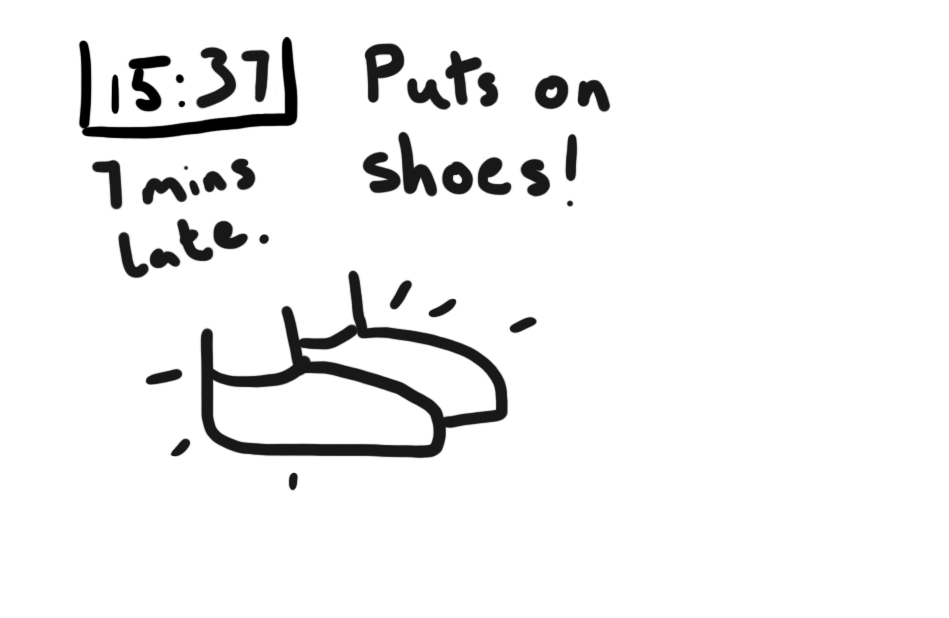 15:37
7 mins
late.
Puts on
shoes!